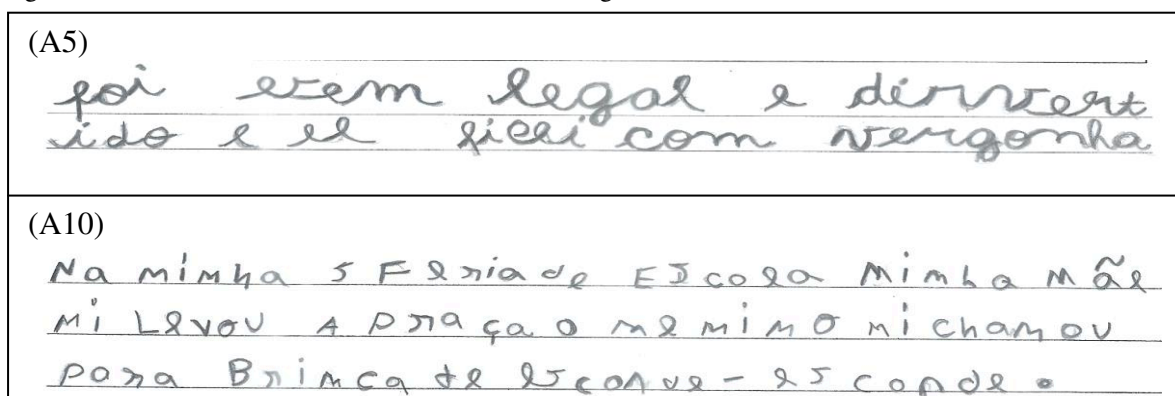 (A5)
foi erem legal e dirvert
ido e el ficei com vergonha
(A10)
Na minha s Feria de EScola minha mãe
mi Levou A praça o memimo mi chamou
para Brimca de esconde-esconde.